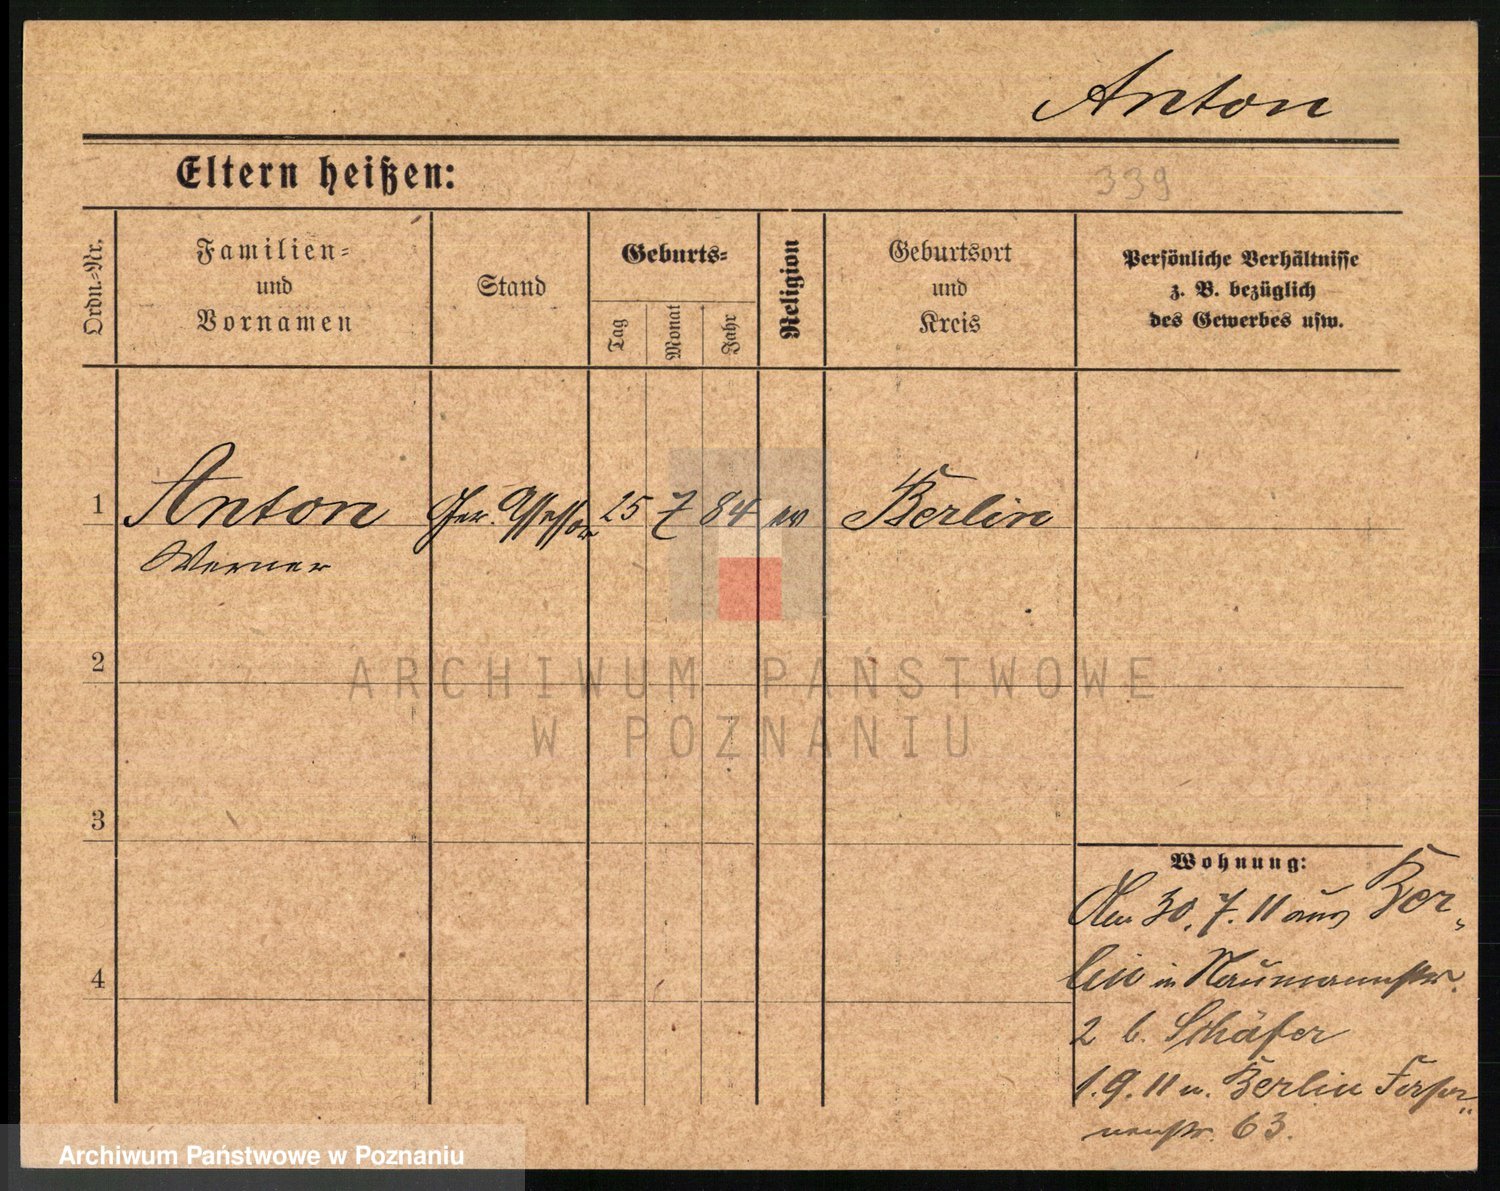 Anton
Eltern heißen:
339
Ordn.-Nr.
Familien-
und
Vornamen
Stand
Geburts-
Tag
Monat
Jahr
Religion
Geburtsort
und
Kreis
Persönliche Verhältnisse
z. B. bezüglich
des Gewerbes usw.
1 Anton Ger. Assessor 25 7 84 ev Berlin
Werner
2
3
4
ARCHIWUM PAŃSTWOWE
W POZNANIU
Wohnung:
Den 30.7.11 aus Ber-
lin in Naumannstr.
2 b. Schäfer
1.9.11 n. Berlin
63.
Archiwum Państwowe w Poznaniu